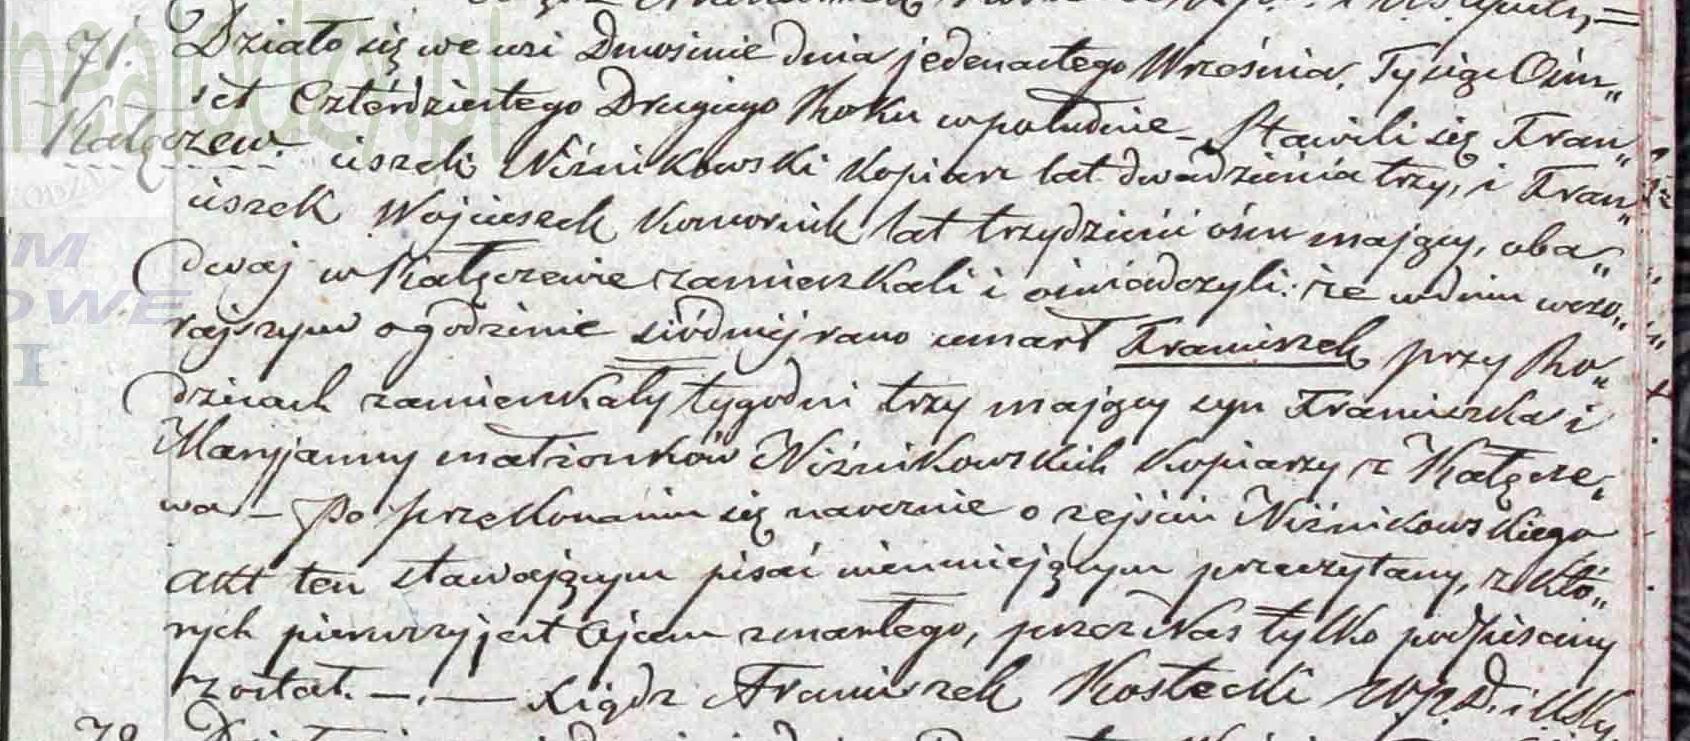 71. Działo się we wsi Dmosinie dnia jedenastego Września, Tysiąc Ośm„
set Czterdziestego Drugiego Roku w południe – Stawili się Fran„
Kałęczew. ciszek Wiśnikowski Kopiarz lat dwadzieścia trzy, i Fran„
ciszek Wojcieszek Komornik lat trzydzieści ośm mający, oba„
dwaj w Kałęczewie zamieszkali i oświadczyli: że w dniu wczo„
rajszym o godzinie siódmej rano umarł Franciszek przy Ro„
dzicach zamieszkały tygodni trzy mający syn Franciszka i
Maryjanny małżonków Wiśnikowskich Kopiarzy z Kałęcze„
wa – Po przekonaniu się naocznie o zejściu Wiśnikowskiego
Akt ten stawającym pisać nieumiejącym przeczytany, z któ„
rych pierwszy jest Ojcem zmarłego, przez Nas tylko podpisany
został. —.— Xiądz Franciszek Kostecki